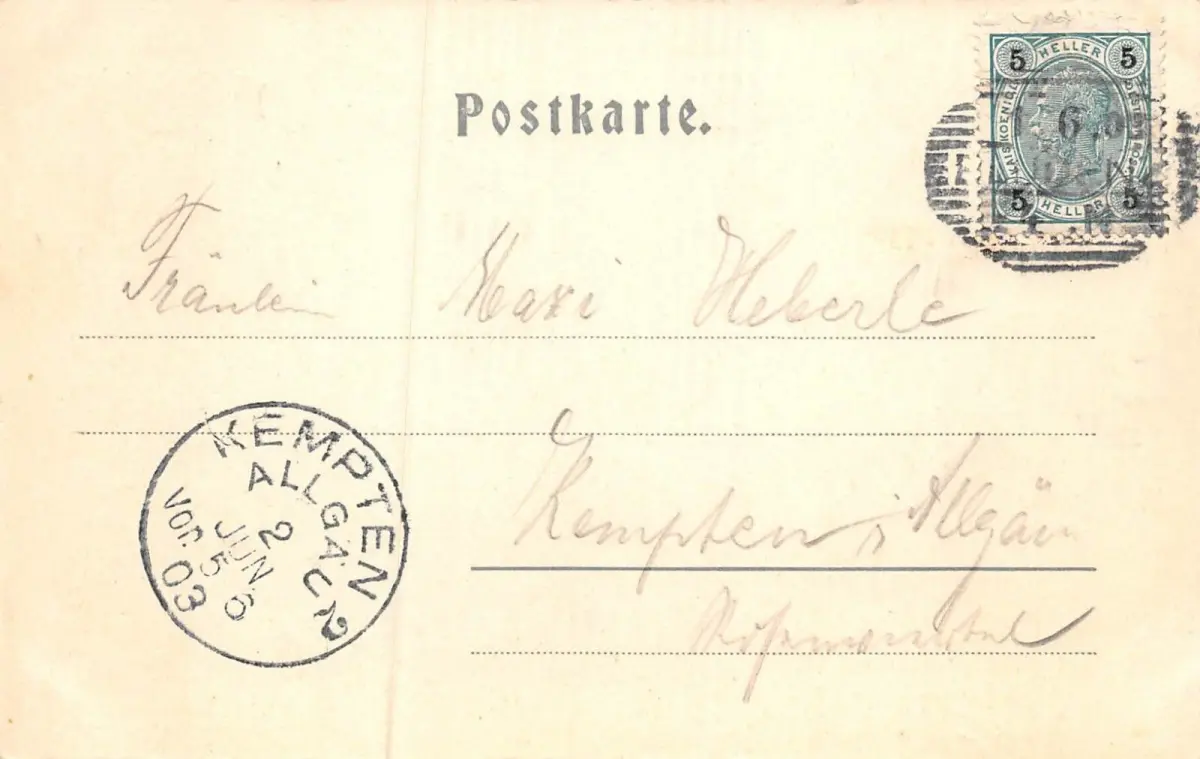 Postkarte.
5 HELLER 5
KAIS KOENIGL
5 HELLER 5
6
Fräulein Maxi Heberle
Kempten i Allgäu
KEMPTEN 2
ALLGÄU
2
JUN
5 6
Vor. 03